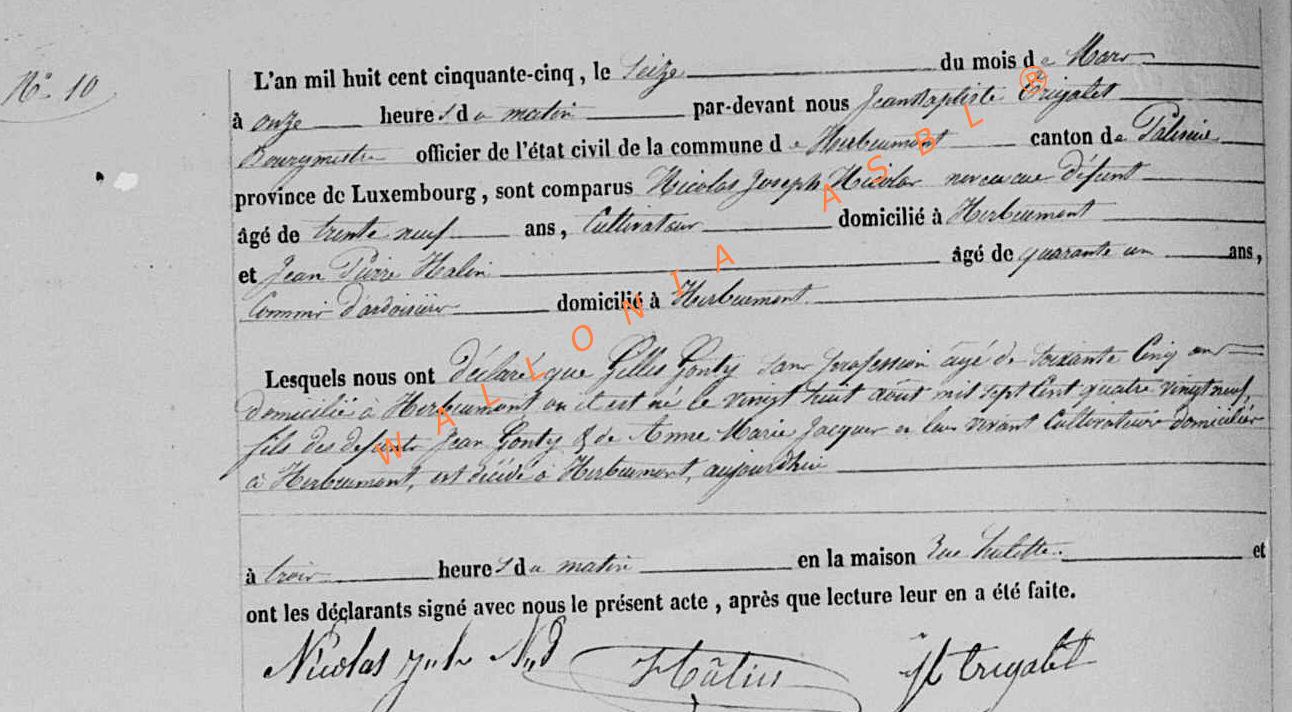 N° 10
L'an mil huit cent cinquante-cinq, le Seize du mois de Mars
à onze heures du matin par-devant nous Jean Baptiste Trigalet
Bourgmestre officier de l'état civil de la commune de Herbeumont canton de Paliseul
province de Luxembourg, sont comparus Nicolas Joseph Nicolas neveu du défunt
âgé de trente neuf ans, Cultivateur domicilié à Herbeumont
et Jean Pierre Halin âgé de quarante un ans,
Commis d'ardoisière domicilié à Herbeumont
Lesquels nous ont déclaré que Gilles Gonty sans profession âgé de Soixante Cinq ans
domicilié à Herbeumont où il est né le vingt huit août mil sept Cent quatre vingt neuf,
fils des défunts Jean Gonty & de Anne Marie Jacques en leur vivant Cultivateurs domiciliés
à Herbeumont, est décédé à Herbeumont, aujourd'hui
à trois heures du matin en la maison Rue et
ont les déclarants signé avec nous le présent acte, après que lecture leur en a été faite.
Nicolas Halin JB Trigalet
WALLONIA ASBL ®